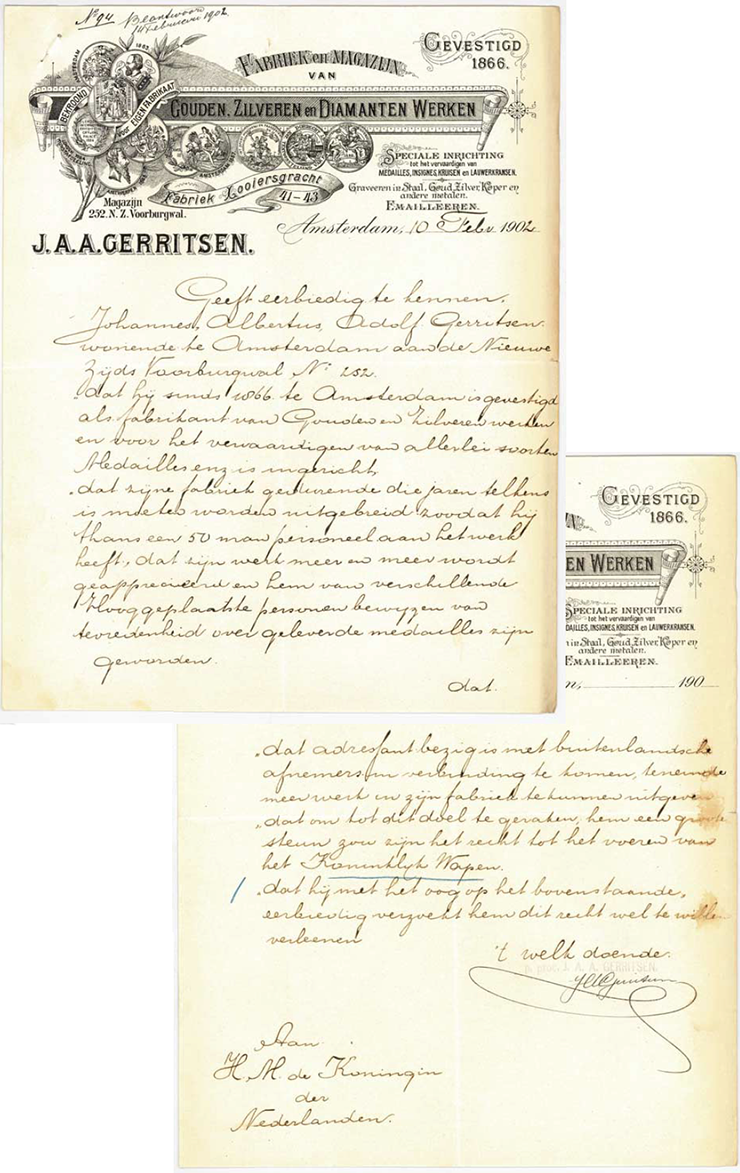 No 94 Beantwoord
14 Februari 1902
FABRIEK en MAGAZIJN
VAN
GOUDEN, ZILVEREN en DIAMANTEN WERKEN
GEVESTIGD
1866.
BEKROOND VOOR EIGEN FABRIKAAT
AMSTERDAM 1883
SPECIALE INRICHTING
tot het vervaardigen van
MEDAILLES, INSIGNES, KRUISEN en LAUWERKRANSEN.
Graveeren in Staal, Goud, Zilver, Koper en
andere metalen.
EMAILLEEREN.
Fabriek Looiersgracht 41-43
Magazijn
252. N. Z. Voorburgwal.
Amsterdam, 10 Febr 1902
J. A. A. GERRITSEN.
Geeft eerbiedig te kennen,
Johannes, Albertus, Adolf Gerritsen.
wonende te Amsterdam aan de Nieuwe
Zijds Voorburgwal No 252.
. dat hij sinds 1866 te Amsterdam is gevestigd
als fabrikant van Gouden en Zilveren werken
en voor het vervaardigen van allerlei soorten
Medailles enz is ingericht,
. dat zijne fabriek gedurende die jaren telkens
is moeten worden uitgebreid zoodat hij
thans een 50 man personeel aan het werk
heeft, dat zijn werk meer en meer wordt
geapprecieerd en hem van verschillende
Hooggeplaatste personen bewijzen van
tevredenheid over geleverde medailles zijn
geworden.
dat.
GEVESTIGD
1866.
EN WERKEN
SPECIALE INRICHTING
tot het vervaardigen van
DAILLES, INSIGNES, KRUISEN en LAUWERKRANSEN.
n in Staal, Goud, Zilver, Koper en
andere metalen.
EMAILLEEREN.
m, 190
. dat adressant bezig is met buitenlandsche
afnemers in verbinding te komen, teneinde
meer werk in zijn fabriek te kunnen uitgeven
. dat om tot dit doel te geraken, hem een groote
steun zou zijn het recht tot het voeren van
het Koninklijk Wapen.
. dat hij met het oog op het bovenstaande,
eerbiedig verzoekt hem dit recht wel te willen
verleenen
't welk doende.
p. proc. J. A. A. GERRITSEN.
Aan
H. M. de Koningin
der
Nederlanden.